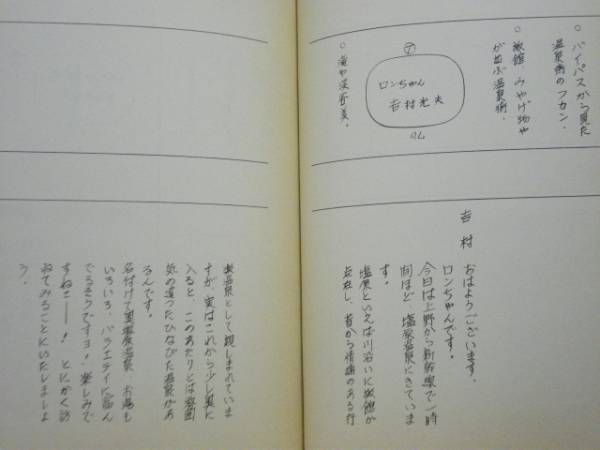 ○バイパスから見た
温泉街のフカン.
○旅館、みやげ物や
が並ぶ温泉街.
ロンちゃん
吉村光夫
○滝や渓谷美.
吉村 おはようございます.
ロンちゃんです。
今日は上野から新幹線で一時
間ほど、塩原温泉にきていま
す。
塩原といえば川沿いに旅館が
点在し、昔から情緒のある行
楽温泉として親しまれていま
すが、実はこれから少し奥に
入ると、このあたりとは雰囲
気の違ったひなびた温泉があ
るんです。
名付けて奥塩原温泉、お湯も
いろいろ、バラエティに富ん
でるそうですヨ！、楽しみで
すねこーー！ とにかく訪
ねてみることにいたしましょ
う。